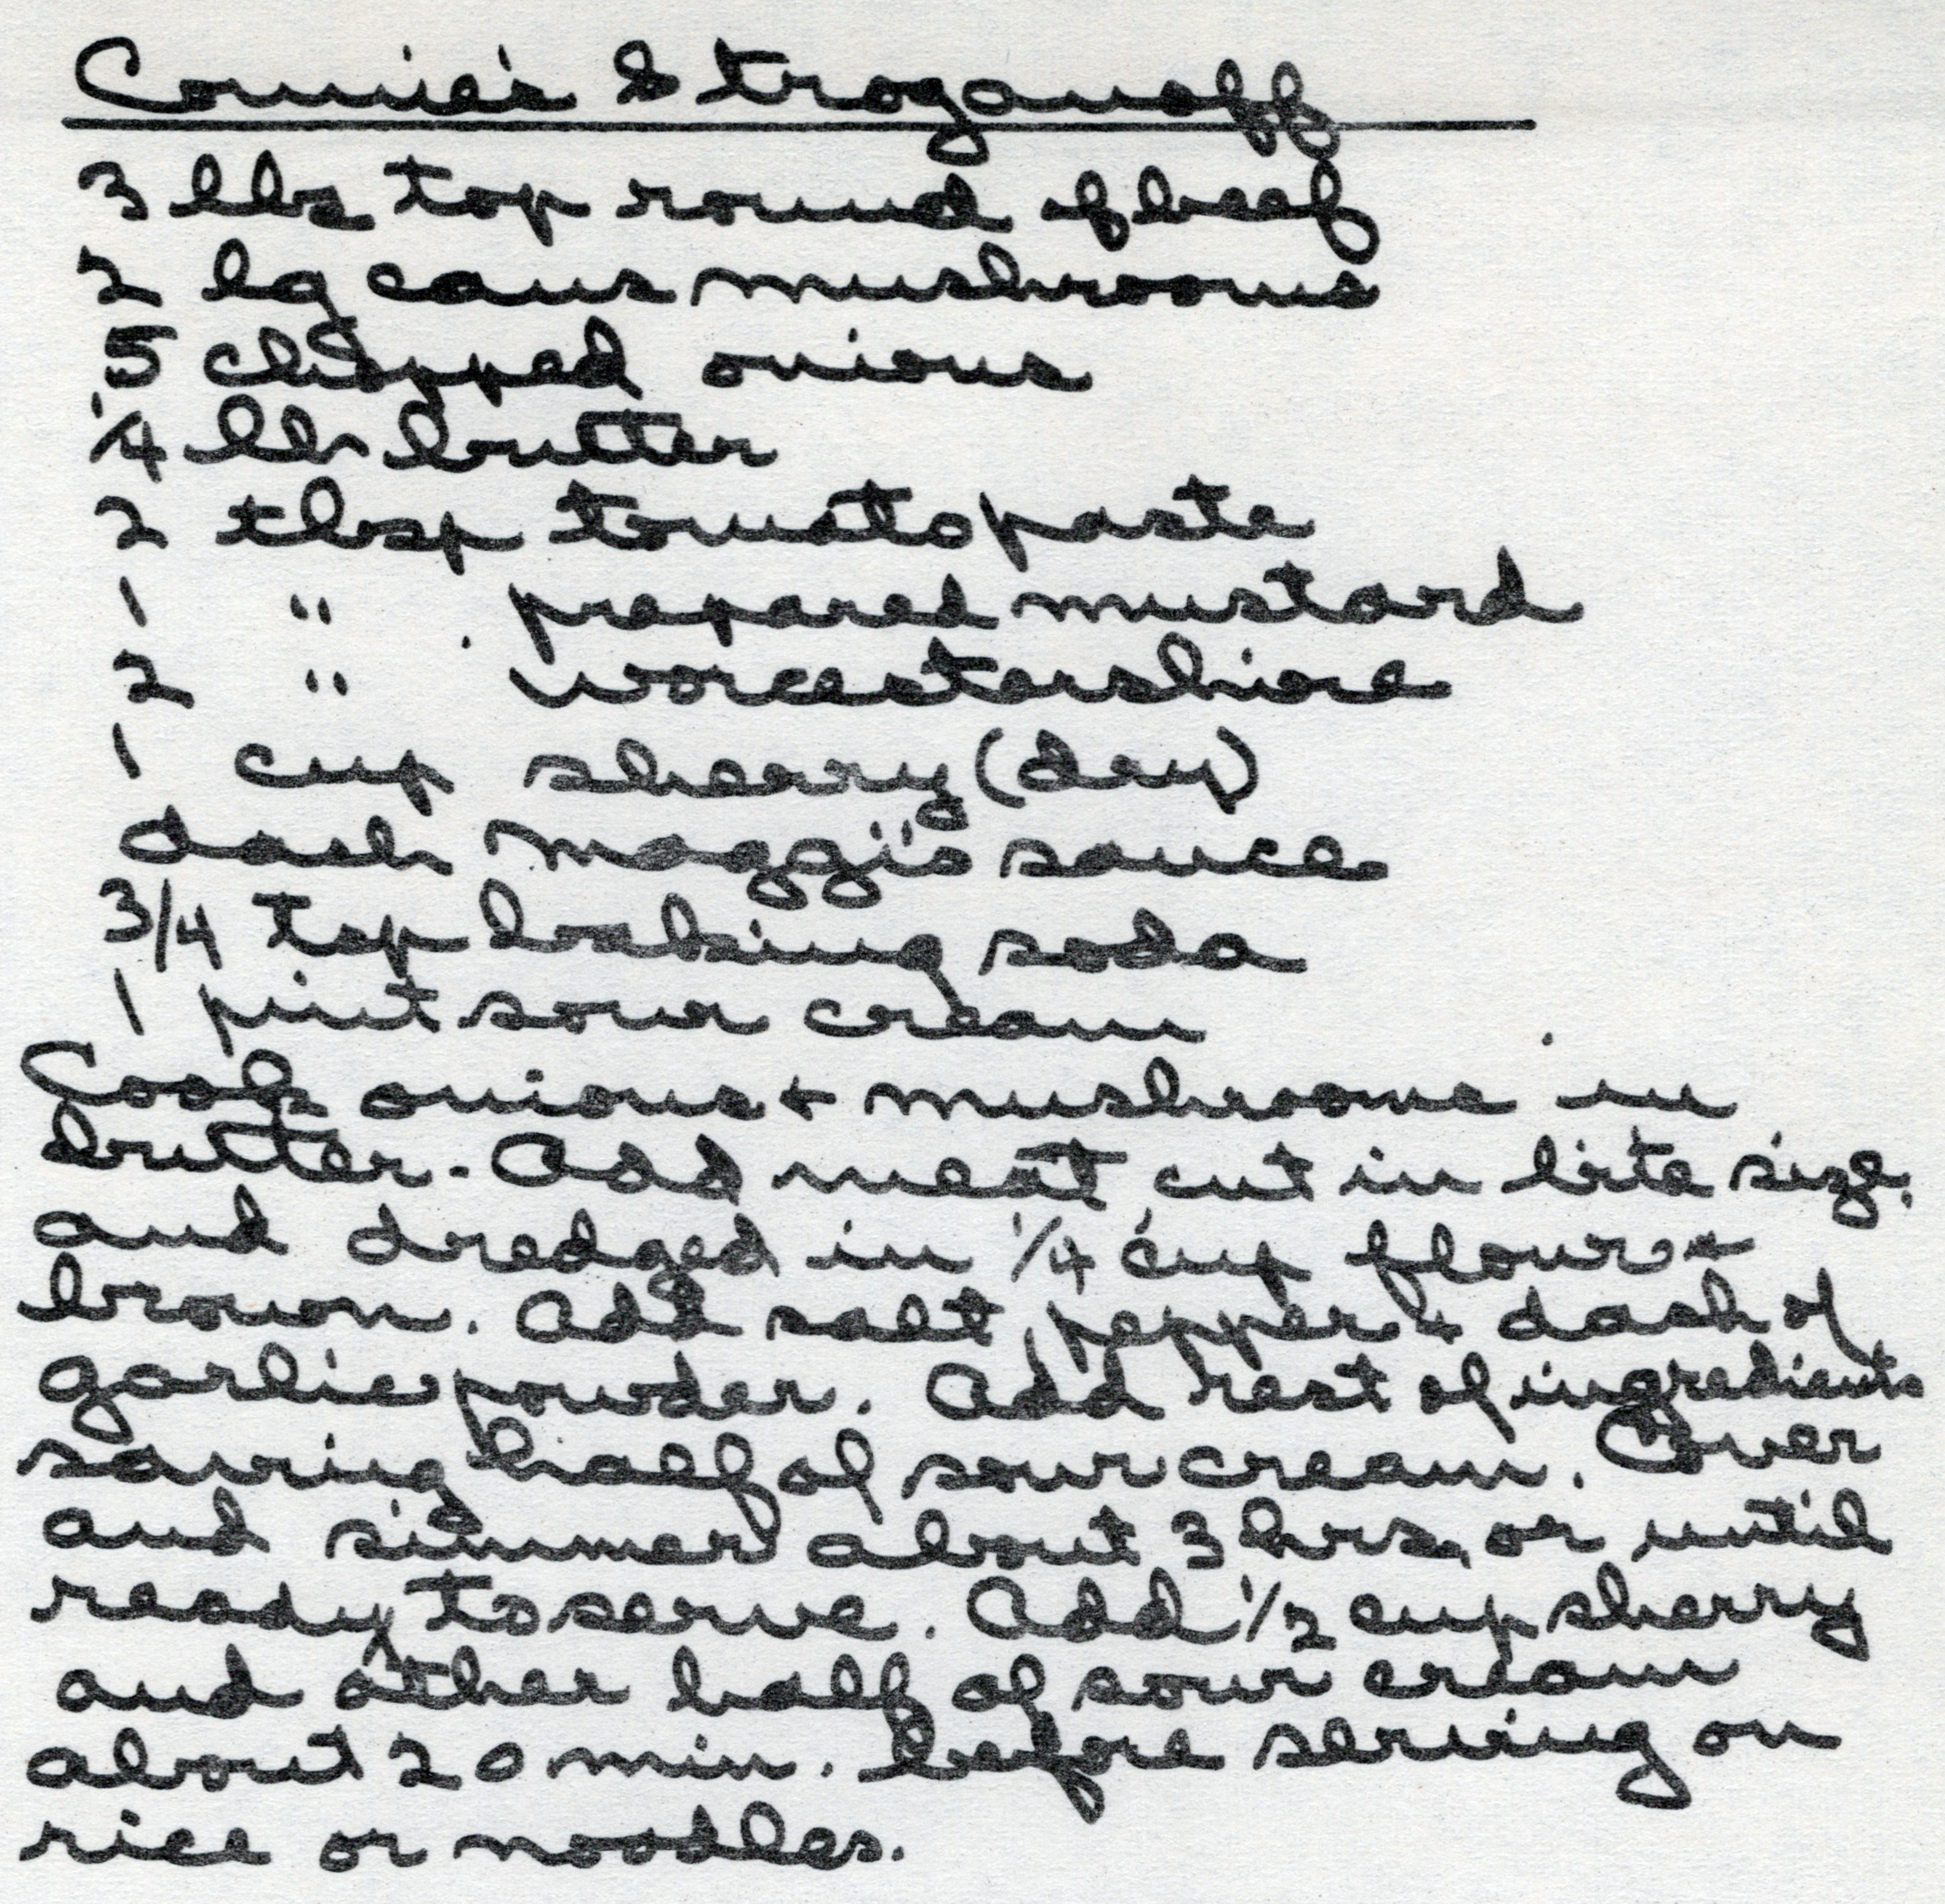 Connie's Stroganoff
3 lbs top round of beef
2 lg cans mushrooms
5 chopped onions
1/4 lb butter
2 tbsp tomato paste
1 " prepared mustard
2 " worcestershire
1 cup sherry (dry)
dash Maggi's sauce
3/4 tsp baking soda
1 pint sour cream
Cook onions + mushrooms in
butter - Add meat cut in bite size,
and dredged in 1/4 cup flour +
brown. Add salt, pepper + dash of
garlic powder. Add rest of ingredients
saving half of sour cream. Cover
and simmer about 3 hrs, or until
ready to serve. Add 1/2 cup sherry
and other half of sour cream
about 20 min. before serving on
rice or noodles.